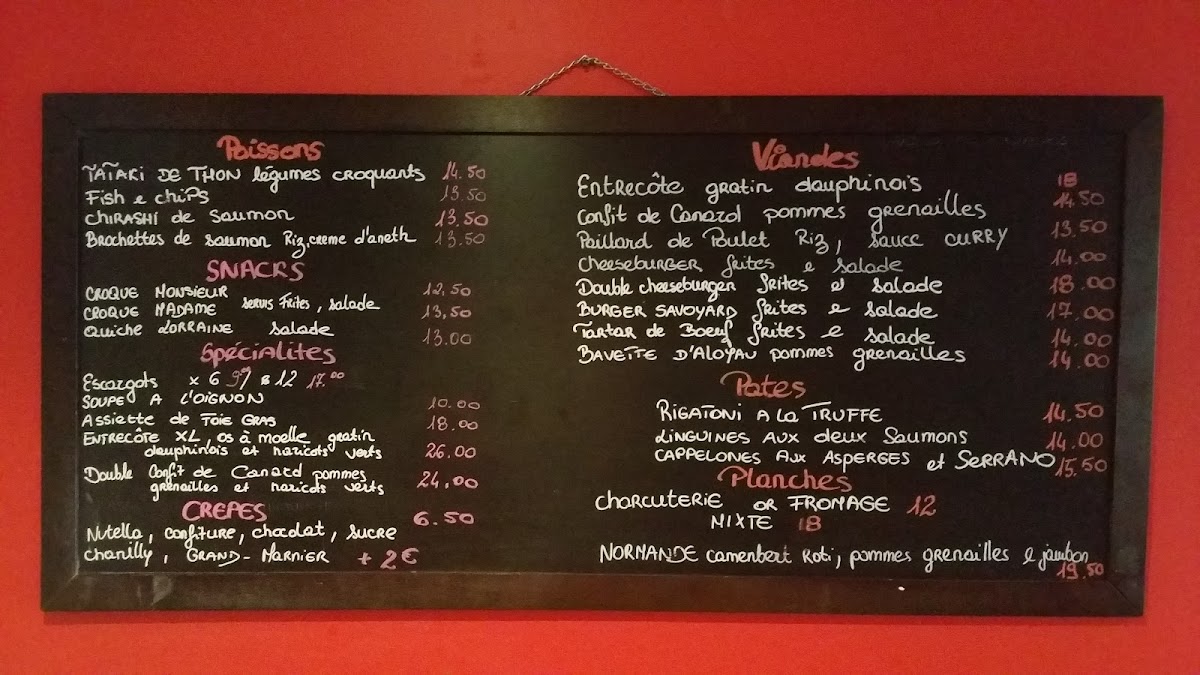 Poissons
TATAKI DE THON légumes croquants 14.50
Fish e chips 13.50
CHIRASHI de saumon 13.50
Brochettes de saumon Riz, creme d'aneth 13.50
SNACKS
CROQUE MONSIEUR 12,50
CROQUE MADAME servis frites, salade 13,50
Quiche LORRAINE salade 13.00
Spécialites
Escargots x 6 9 x 12 17.00
SOUPE A L'OIGNON 10.00
Assiette de FOIE GRAS 18.00
ENTRECÔTE XL, os à moelle gratin
dauphinois et haricots verts 26.00
Double Confit de Canard pommes
grenailles et haricots verts 24,00
CREPES 6.50
Nutella, confiture, chocolat, sucre
chantilly, GRAND-MARNIER + 2€
Viandes
Entrecôte gratin dauphinois 18
Confit de Canard pommes grenailles 14.50
Paillard de Poulet Riz, sauce CURRY 13.50
Cheeseburger frites e salade 14.00
Double cheeseburger frites e salade 18.00
BURGER SAVOYARD frites e salade 17.00
Tartar de Boeuf frites e salade 14.00
BAVETTE D'ALOYAU pommes grenailles 14.00
Pates
RIGATONI A LA TRUFFE 14.50
LINGUINES AUX deux Saumons 14.00
CAPPELONES AUX ASPERGES et SERRANO 15.50
Planches
CHARCUTERIE OR FROMAGE 12
MIXTE 18
NORMANDE camembert Roti, pommes grenailles e jambon
19.50